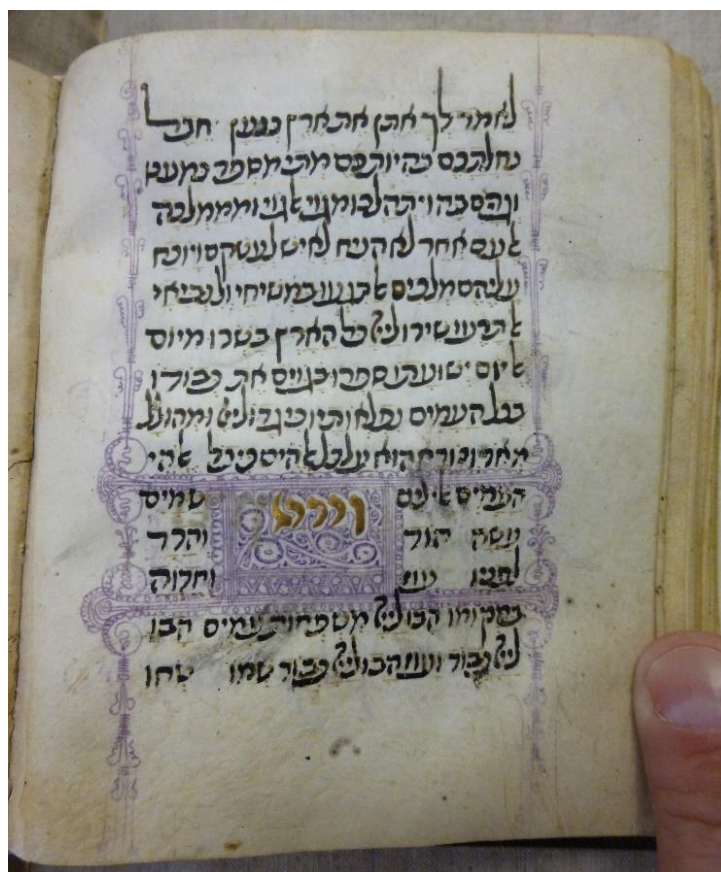 לאמר לך אתן את ארץ כנען חבל
נחלתכם בהיותכם מתי מספר כמעט
וגרים בה ויתהלכו מגוי אל גוי ומממלכה
אל עם אחר לא הניח לאיש לעשקם ויוכח
עליהם מלכים אל תגעו במשיחי ולנביאי
אל תרעו שירו ליי כל הארץ בשרו מיום
אל יום ישועתו ספרו בגוים את כבודו
בכל העמים נפלאותיו כי גדול יי ומהולל
מאד ונורא הוא על כל אלהים כי כל אלהי
העמים אלילים וייי שמים
עשה הוד והדר
לפניו עוז וחדוה
במקומו הבו ליי משפחות עמים הבו
ליי כבוד ועוז הבו ליי כבוד שמו שחו